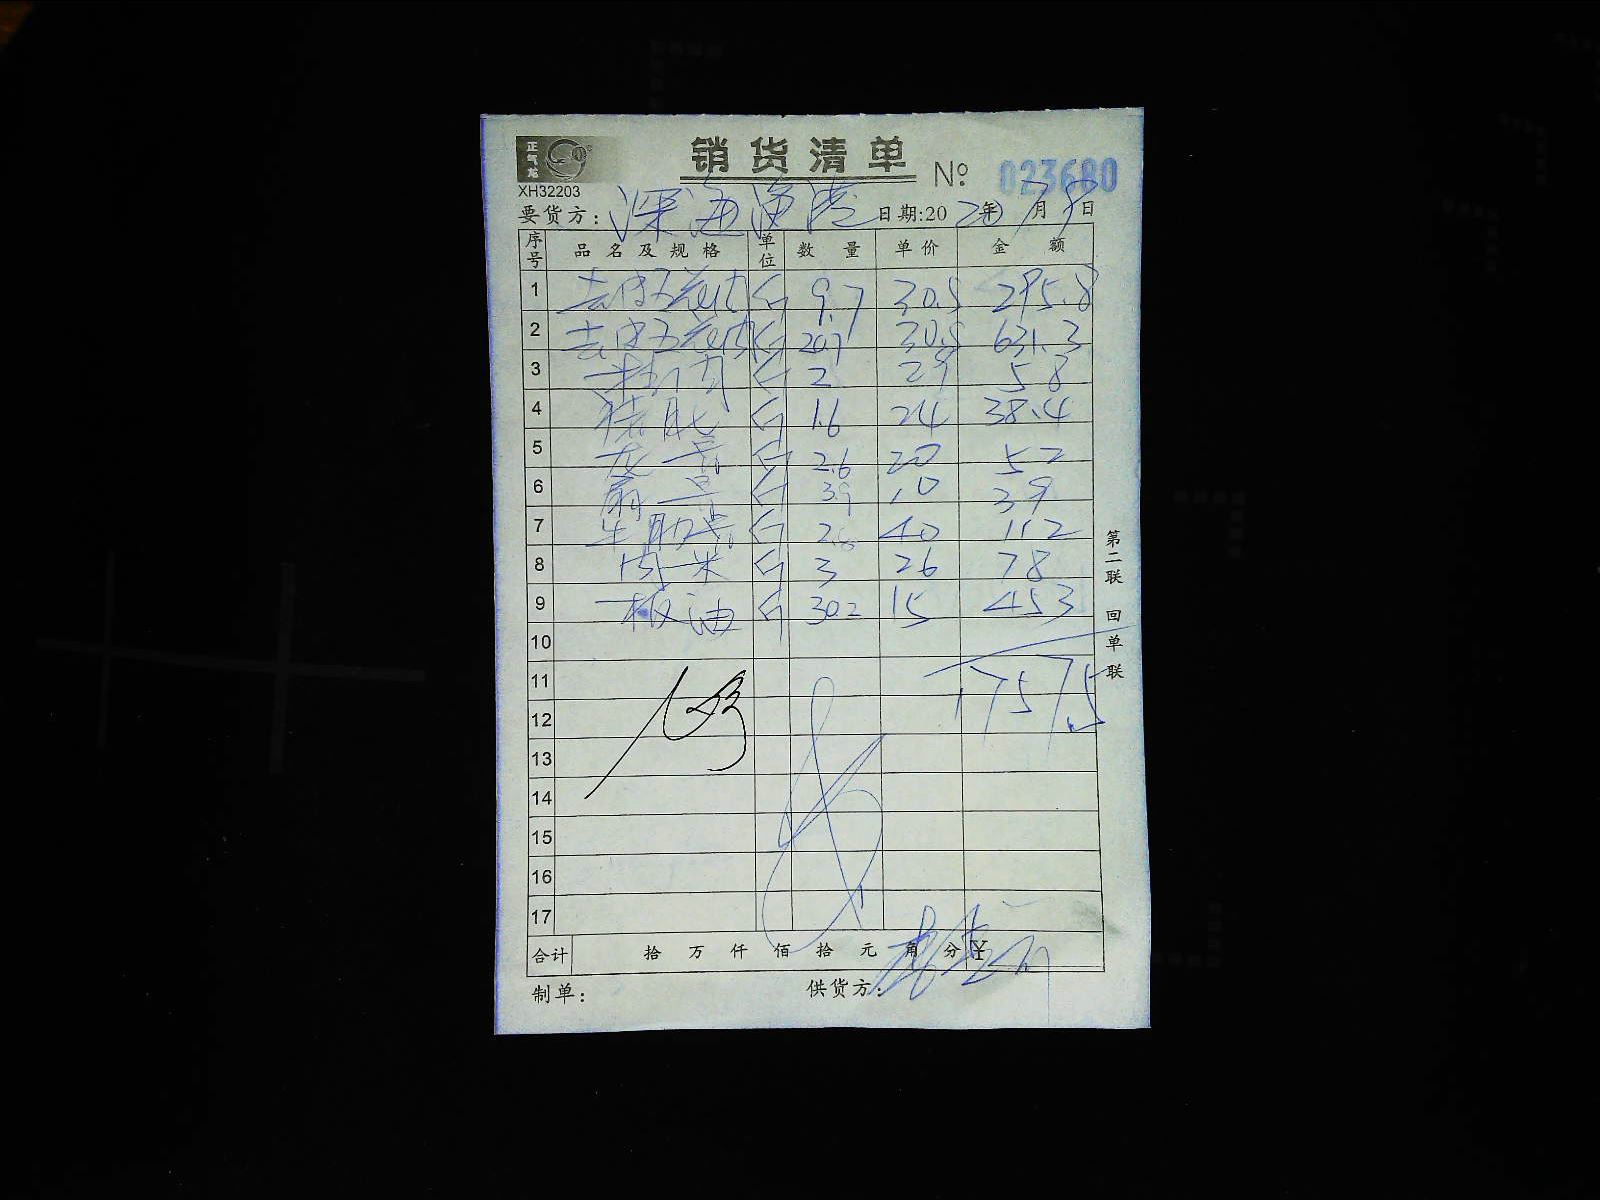 正气龙
销货清单 № 023680
XH32203
要货方: 深海渔港 日期:2020年7月9日
序号 品名及规格 单位 数量 单价 金额
1 去皮五花肉 斤 9.7 30.5 295.8
2 去皮五花肉 斤 20.7 30.5 631.3
3 肉 斤 2 29 58
4 猪 斤 1.6 24 38.4
5 龙骨 斤 2.6 20 52
6 扇骨 斤 3.9 10 39
7 生肋骨 斤 2.8 40 112
8 肉米 斤 3 26 78
9 板油 斤 30.2 15 453
10
11 1757.5
12
13
14
15
16
17
合计 拾 万 仟 佰 拾 元 角 分 ¥
制单: 供货方:
第二联 回单联